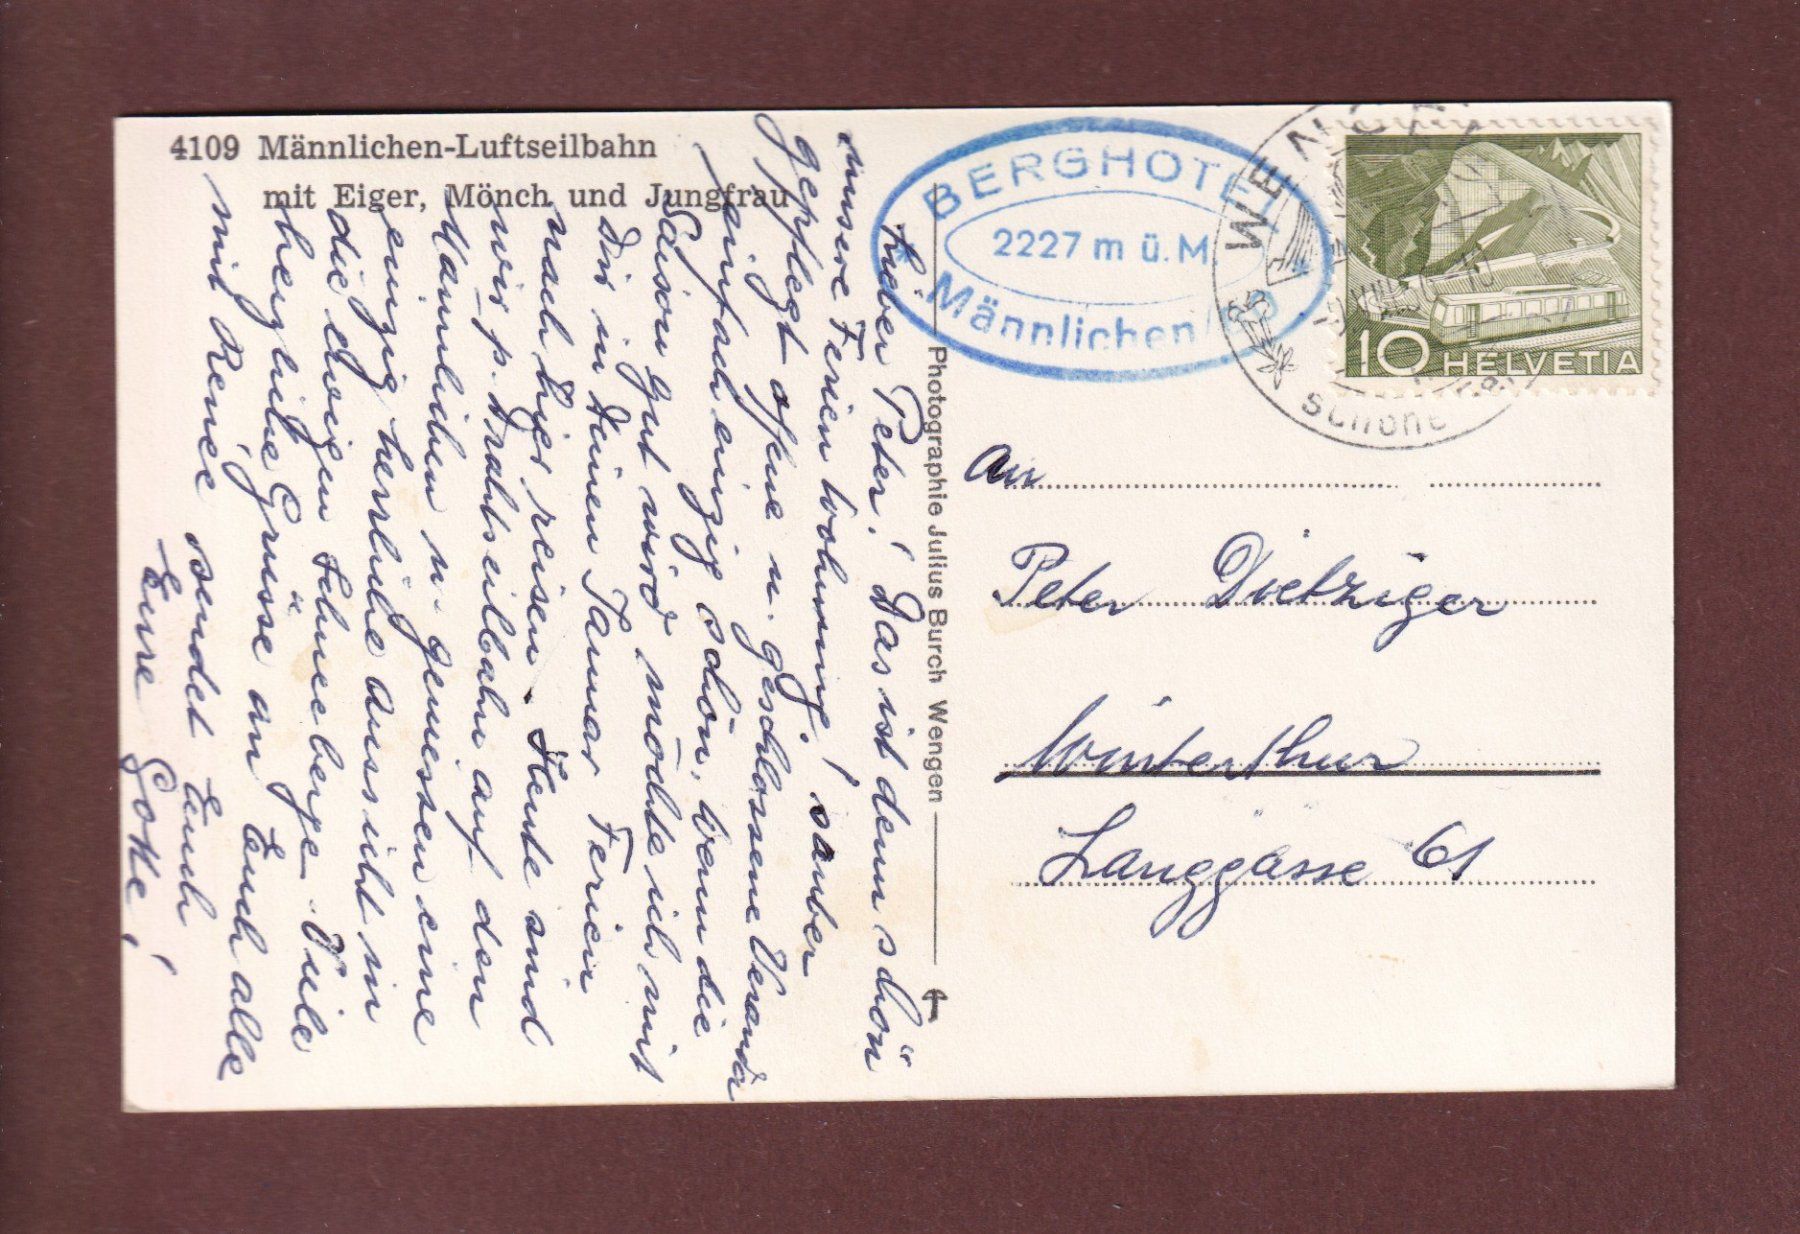 4109 Männlichen-Luftseilbahn
mit Eiger, Mönch und Jungfrau
BERGHOTEL
2227 m ü. M.
Männlichen
WENGEN
10 HELVETIA
Photographie Julius Burch Wengen
Lieber Peter! Das ist denn schön
unsere Ferienwohnung! sauber
gepflegt offene u. geschlossene Veranda
einfach einzig schön, wenn die
Saison gut wird möchte ich mit
Dir in Deinen Ferien
nach hier reisen. Heute sind
wir p. Drahtseilbahn auf den
Männlichen u. geniessen eine
einzig herrliche Aussicht in
die ewigen Schneeberge. Viele
herzliche Grüsse an Euch alle
mit Renée sendet Euch
Eure Gotte!
An
Peter Dietziger
Winterthur
Langgasse 61